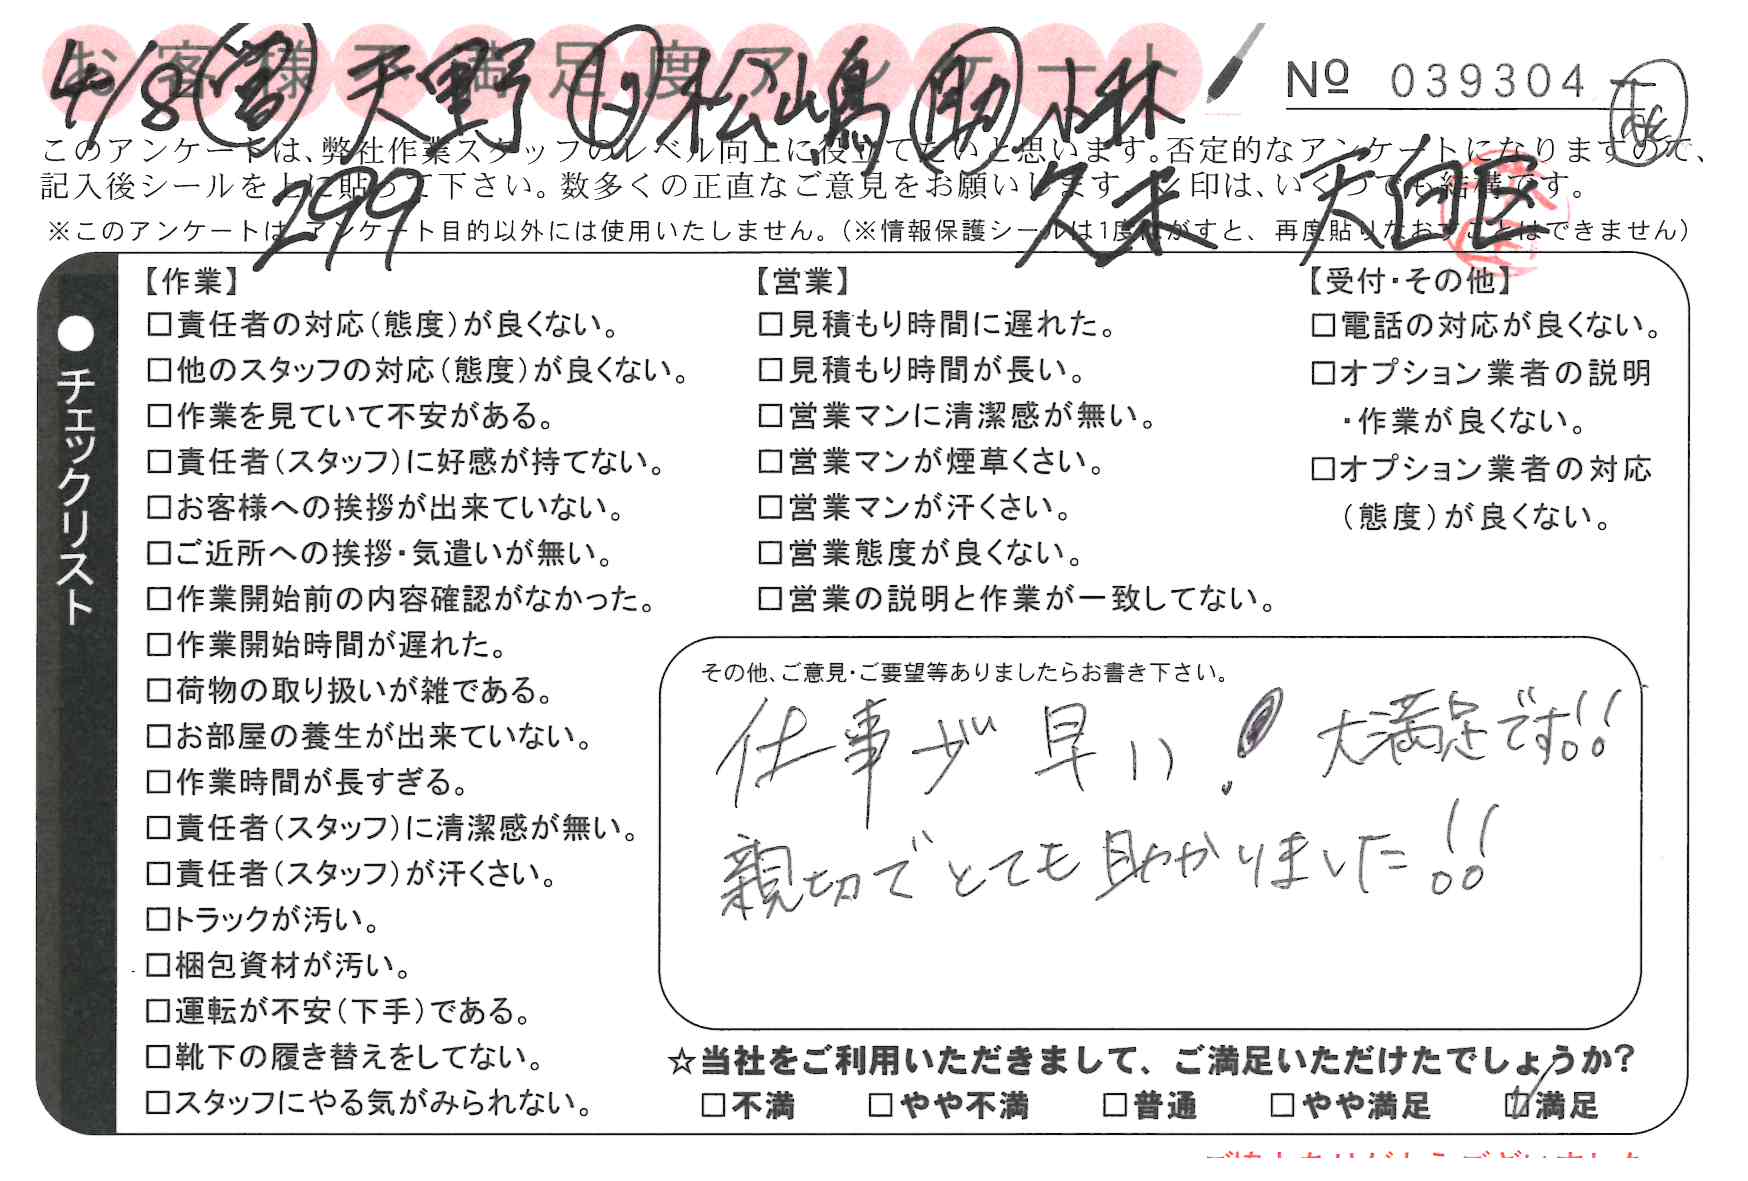 お客様不満足度アンケート
№ 039304
4/8 営 天野 松嶋 助 小林
このアンケートは、弊社作業スタッフのレベル向上に役立てたいと思います。否定的なアンケートになりますので、
記入後シールを上に貼って下さい。数多くの正直なご意見をお願いします。✓印は、いくつでも結構です。
299 天白区
※このアンケートは、アンケート目的以外には使用いたしません。(※情報保護シールは1度はがすと、再度貼りなおすことはできません)
●チェックリスト
【作業】
□責任者の対応(態度)が良くない。
□他のスタッフの対応(態度)が良くない。
□作業を見ていて不安がある。
□責任者(スタッフ)に好感が持てない。
□お客様への挨拶が出来ていない。
□ご近所への挨拶・気遣いが無い。
□作業開始前の内容確認がなかった。
□作業開始時間が遅れた。
□荷物の取り扱いが雑である。
□お部屋の養生が出来ていない。
□作業時間が長すぎる。
□責任者(スタッフ)に清潔感が無い。
□責任者(スタッフ)が汗くさい。
□トラックが汚い。
□梱包資材が汚い。
□運転が不安(下手)である。
□靴下の履き替えをしてない。
□スタッフにやる気がみられない。
【営業】
□見積もり時間に遅れた。
□見積もり時間が長い。
□営業マンに清潔感が無い。
□営業マンが煙草くさい。
□営業マンが汗くさい。
□営業態度が良くない。
□営業の説明と作業が一致してない。
【受付・その他】
□電話の対応が良くない。
□オプション業者の説明
・作業が良くない。
□オプション業者の対応
(態度)が良くない。
その他、ご意見・ご要望等ありましたらお書き下さい。
仕事が早い! 大満足です!!
親切でとても助かりました!!
☆当社をご利用いただきまして、ご満足いただけたでしょうか?
□不満 □やや不満 □普通 □やや満足 ☑満足